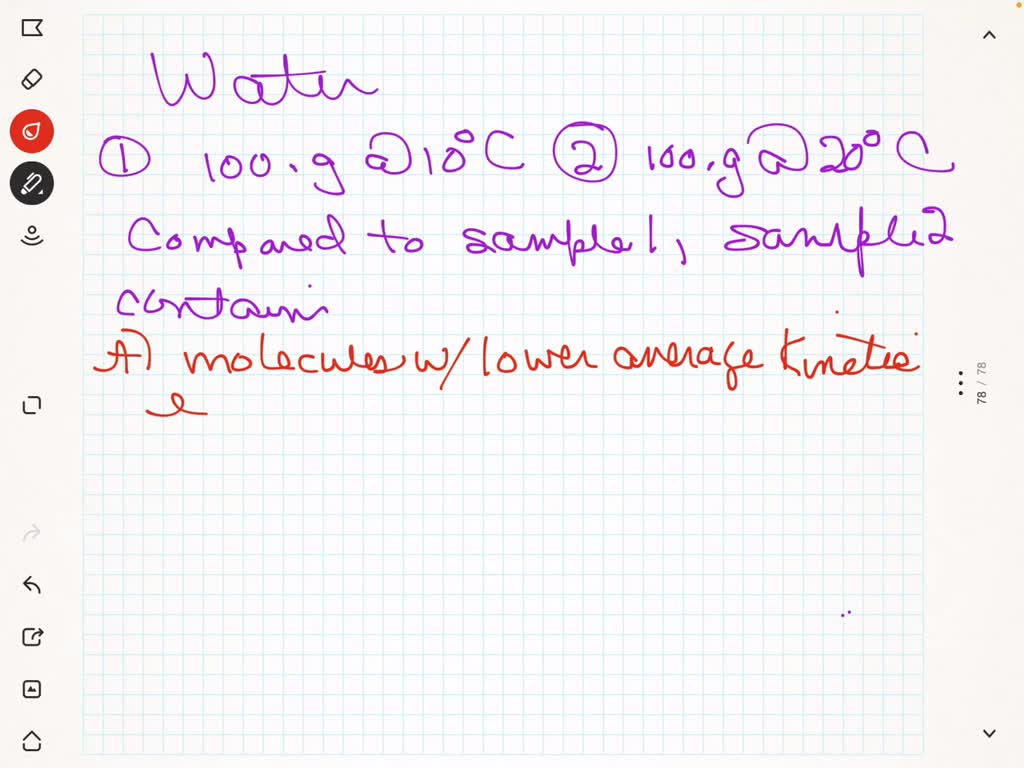 Water
① 100.g @ 10°C ② 100.g @ 20°C
Compared to sample 1, sample 2
contains
A) molecules w/ lower average kinetic
e
78 / 78